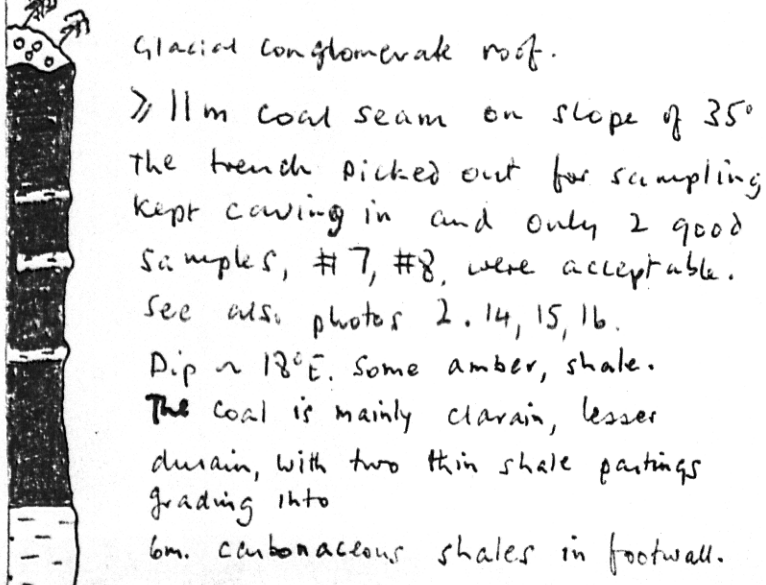 Glacial conglomerate roof.
⩾ 11m coal seam on slope of 35°
The trench picked out for sampling
kept caving in and only 2 good
samples, #7, #8, were acceptable.
See also photos 2.14, 15, 16.
Dip ~ 18°E. Some amber, shale.
The coal is mainly clarain, lesser
durain, with two thin shale partings
grading into
6m. carbonaceous shales in footwall.